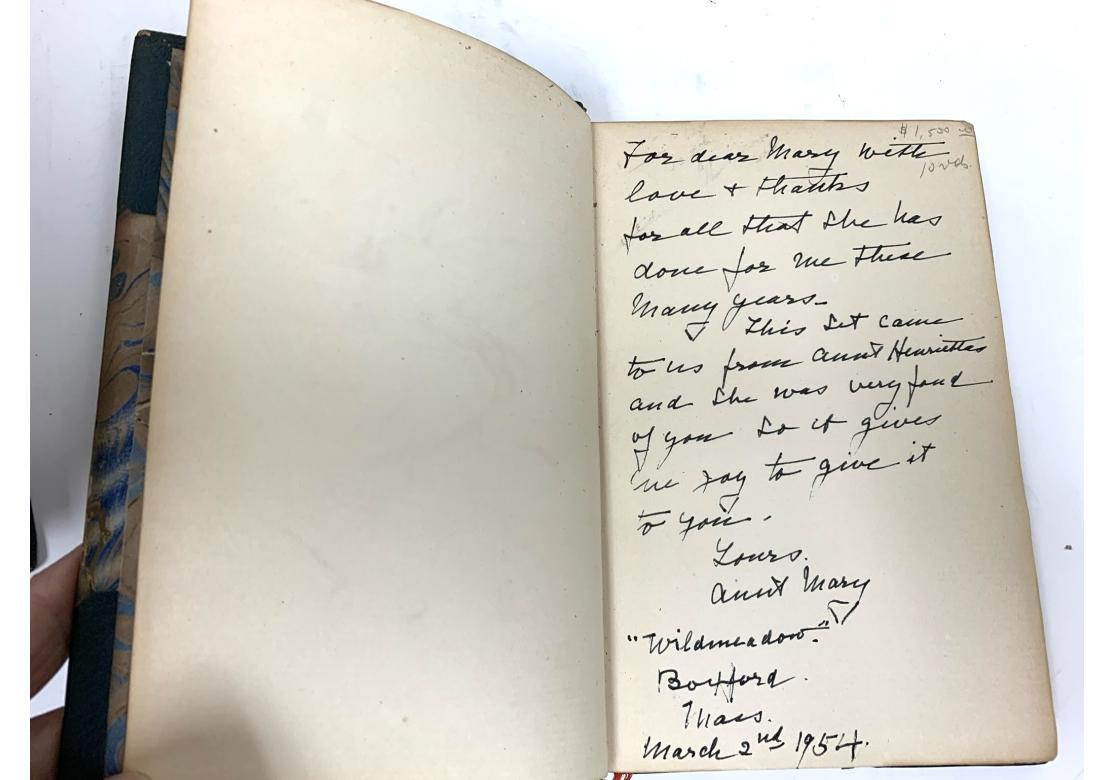 $1,500 00
10 vols.
For dear Mary with
love + thanks
for all that she has
done for me these
Many years -
This set came
to us from Aunt Henriettas
and she was very fond
of you so it gives
me joy to give it
to you.
Yours.
Aunt Mary
"Wildmeadow."
Boxford.
Mass.
March 2nd 1954.